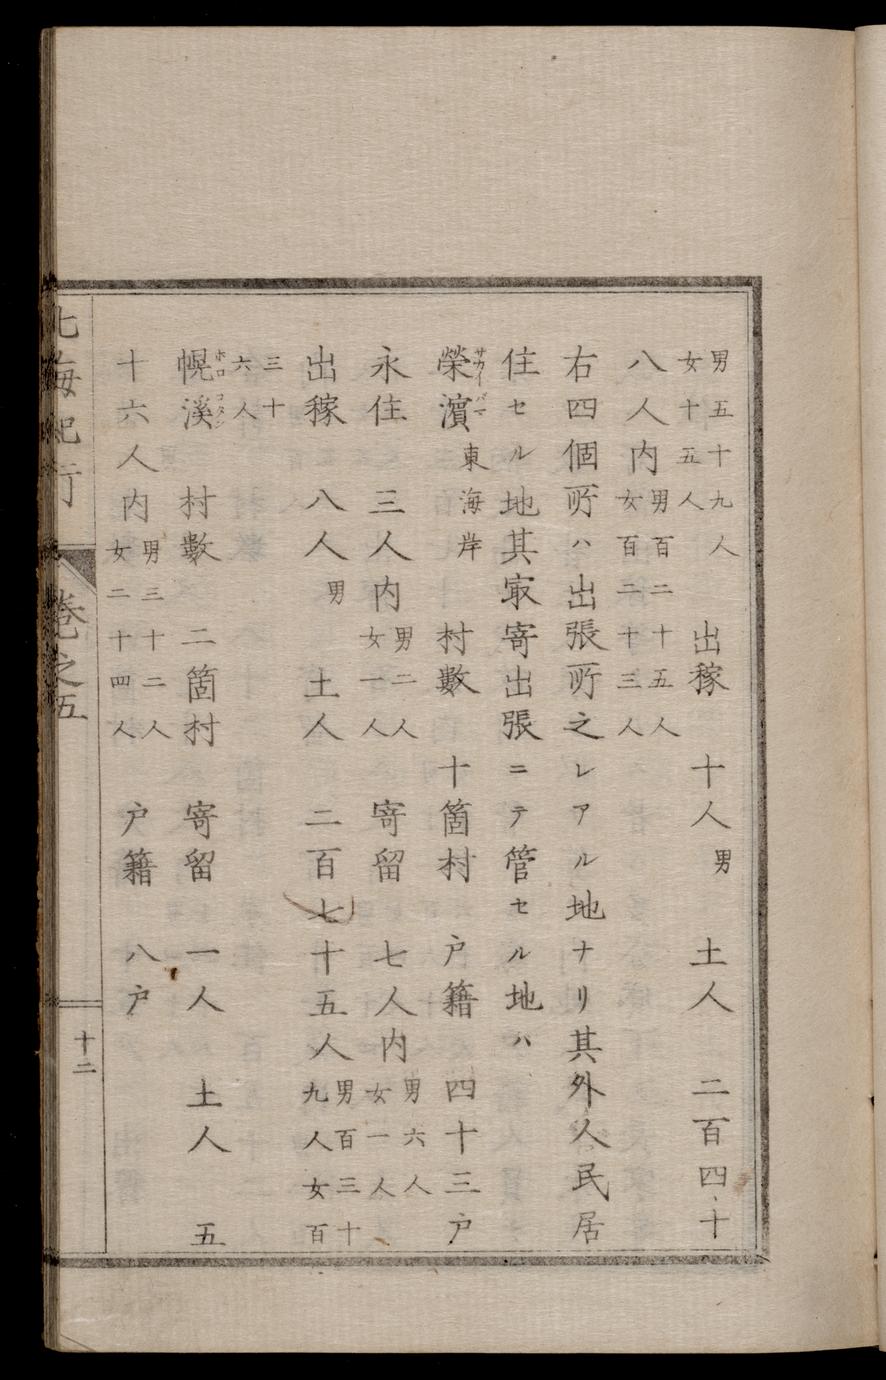 男五十九人 女十五人 出稼 十人 男 土人 二百四十
八人内 男百二十五人 女百二十三人
右四個所ハ出張所之レアル地ナリ其外人民居
住セル地其㝡寄出張ニテ管セル地ハ
榮濵 サカイバマ 東海岸 村數 十箇村 戸籍 四十三戸
永住 三人内 男二人 女一人 寄留 七人内 男六人 女一人
出稼 八人 男 土人 二百七十五人 男百三十九人女百
三十六人
幌溪 ホロコタン 村數 二箇村 寄留 一人 土人 五
十六人内 男三十二人 女二十四人 戸籍 八戸
北海紀行 巻之五 十二